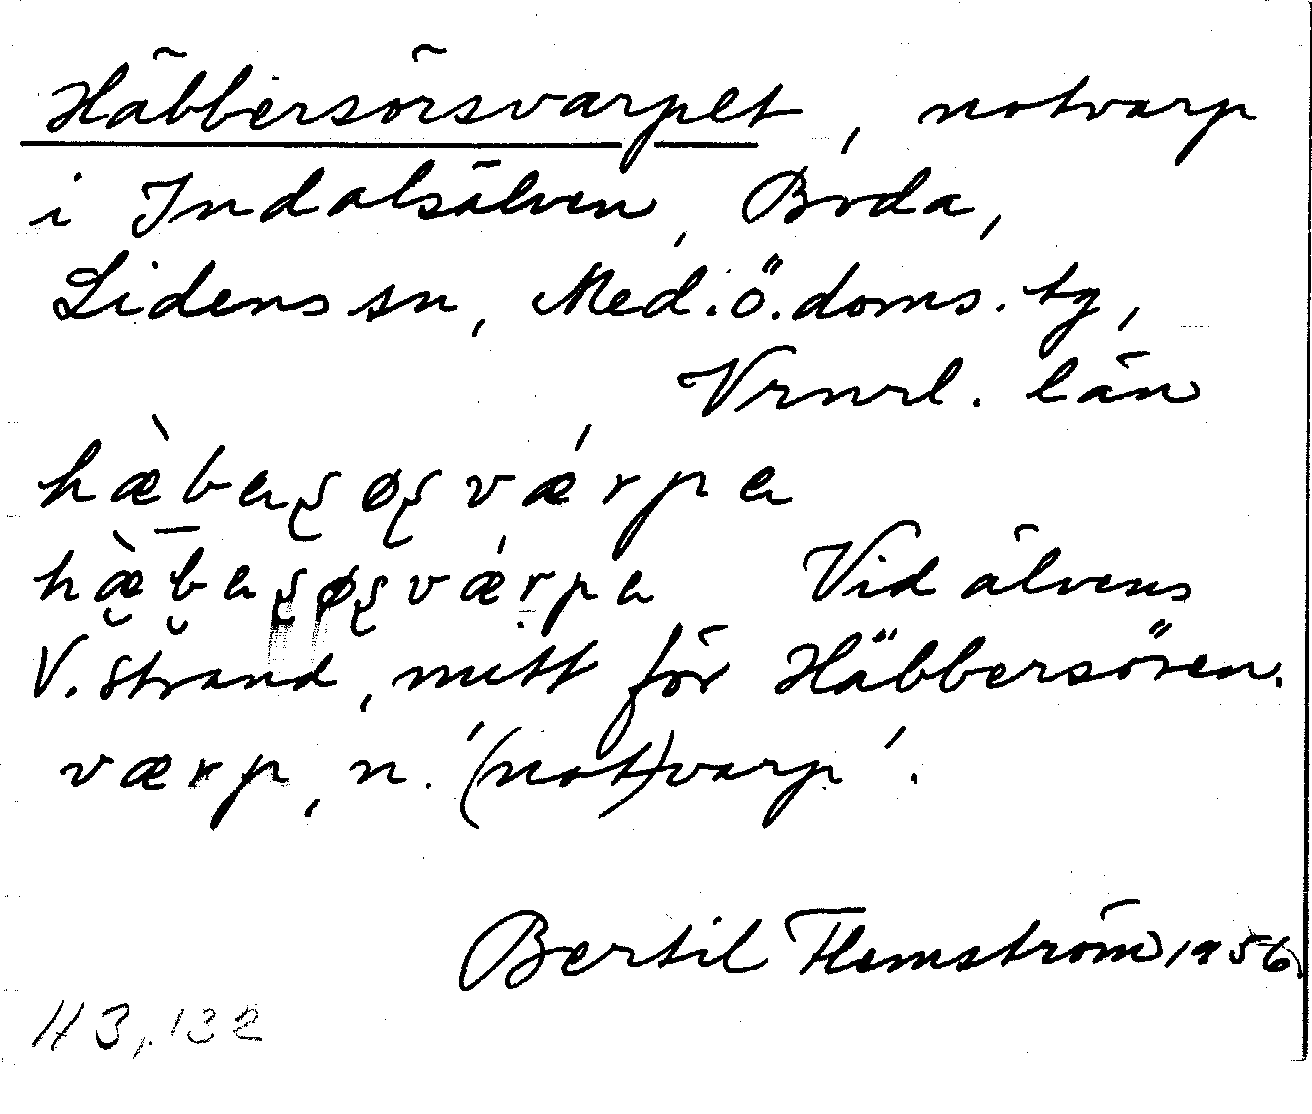 Häbbersörsvarpet, notvarp
i Indalsälven, Boda,
Lidens sn, Med.ö.doms. tg,
Vrnrl. län
Vid älvens
V. strand, mitt för Häbbersören.
værp, n. '(not)varp'.
Bertil Flemström 1956
H3, 132